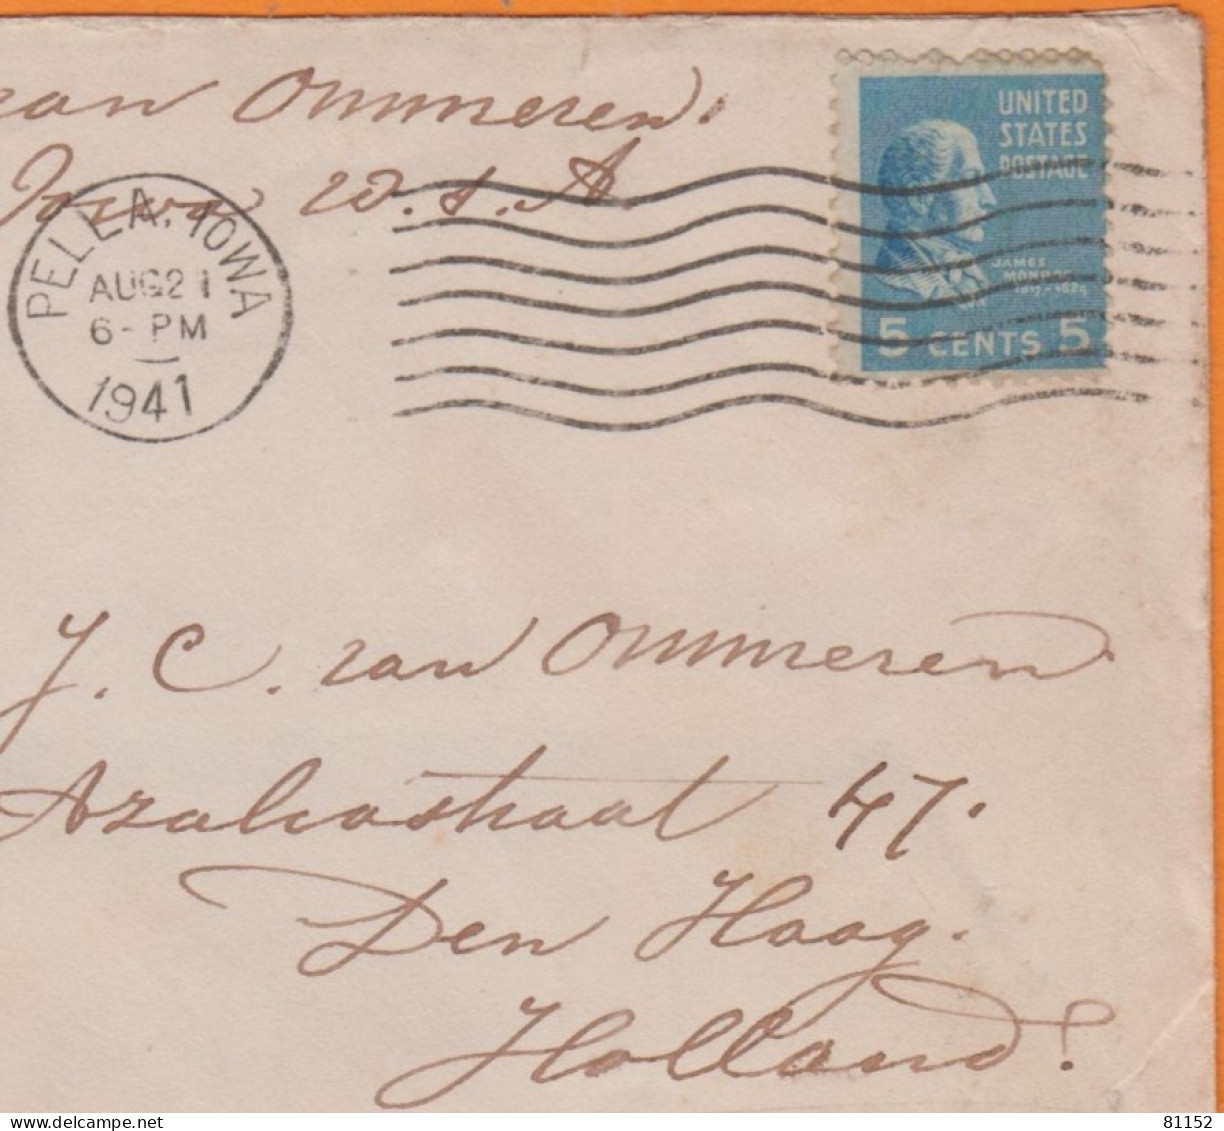 van Ommeren.
Iowa U.S.A
PELLA, IOWA
AUG 21
6 - PM
1941
UNITED
STATES
POSTAGE
JAMES
MONROE
1817-1825
5 CENTS 5
J. C. van Ommeren
Azaleastraat 47.
Den Haag.
Holland!
www.delcampe.net
81152